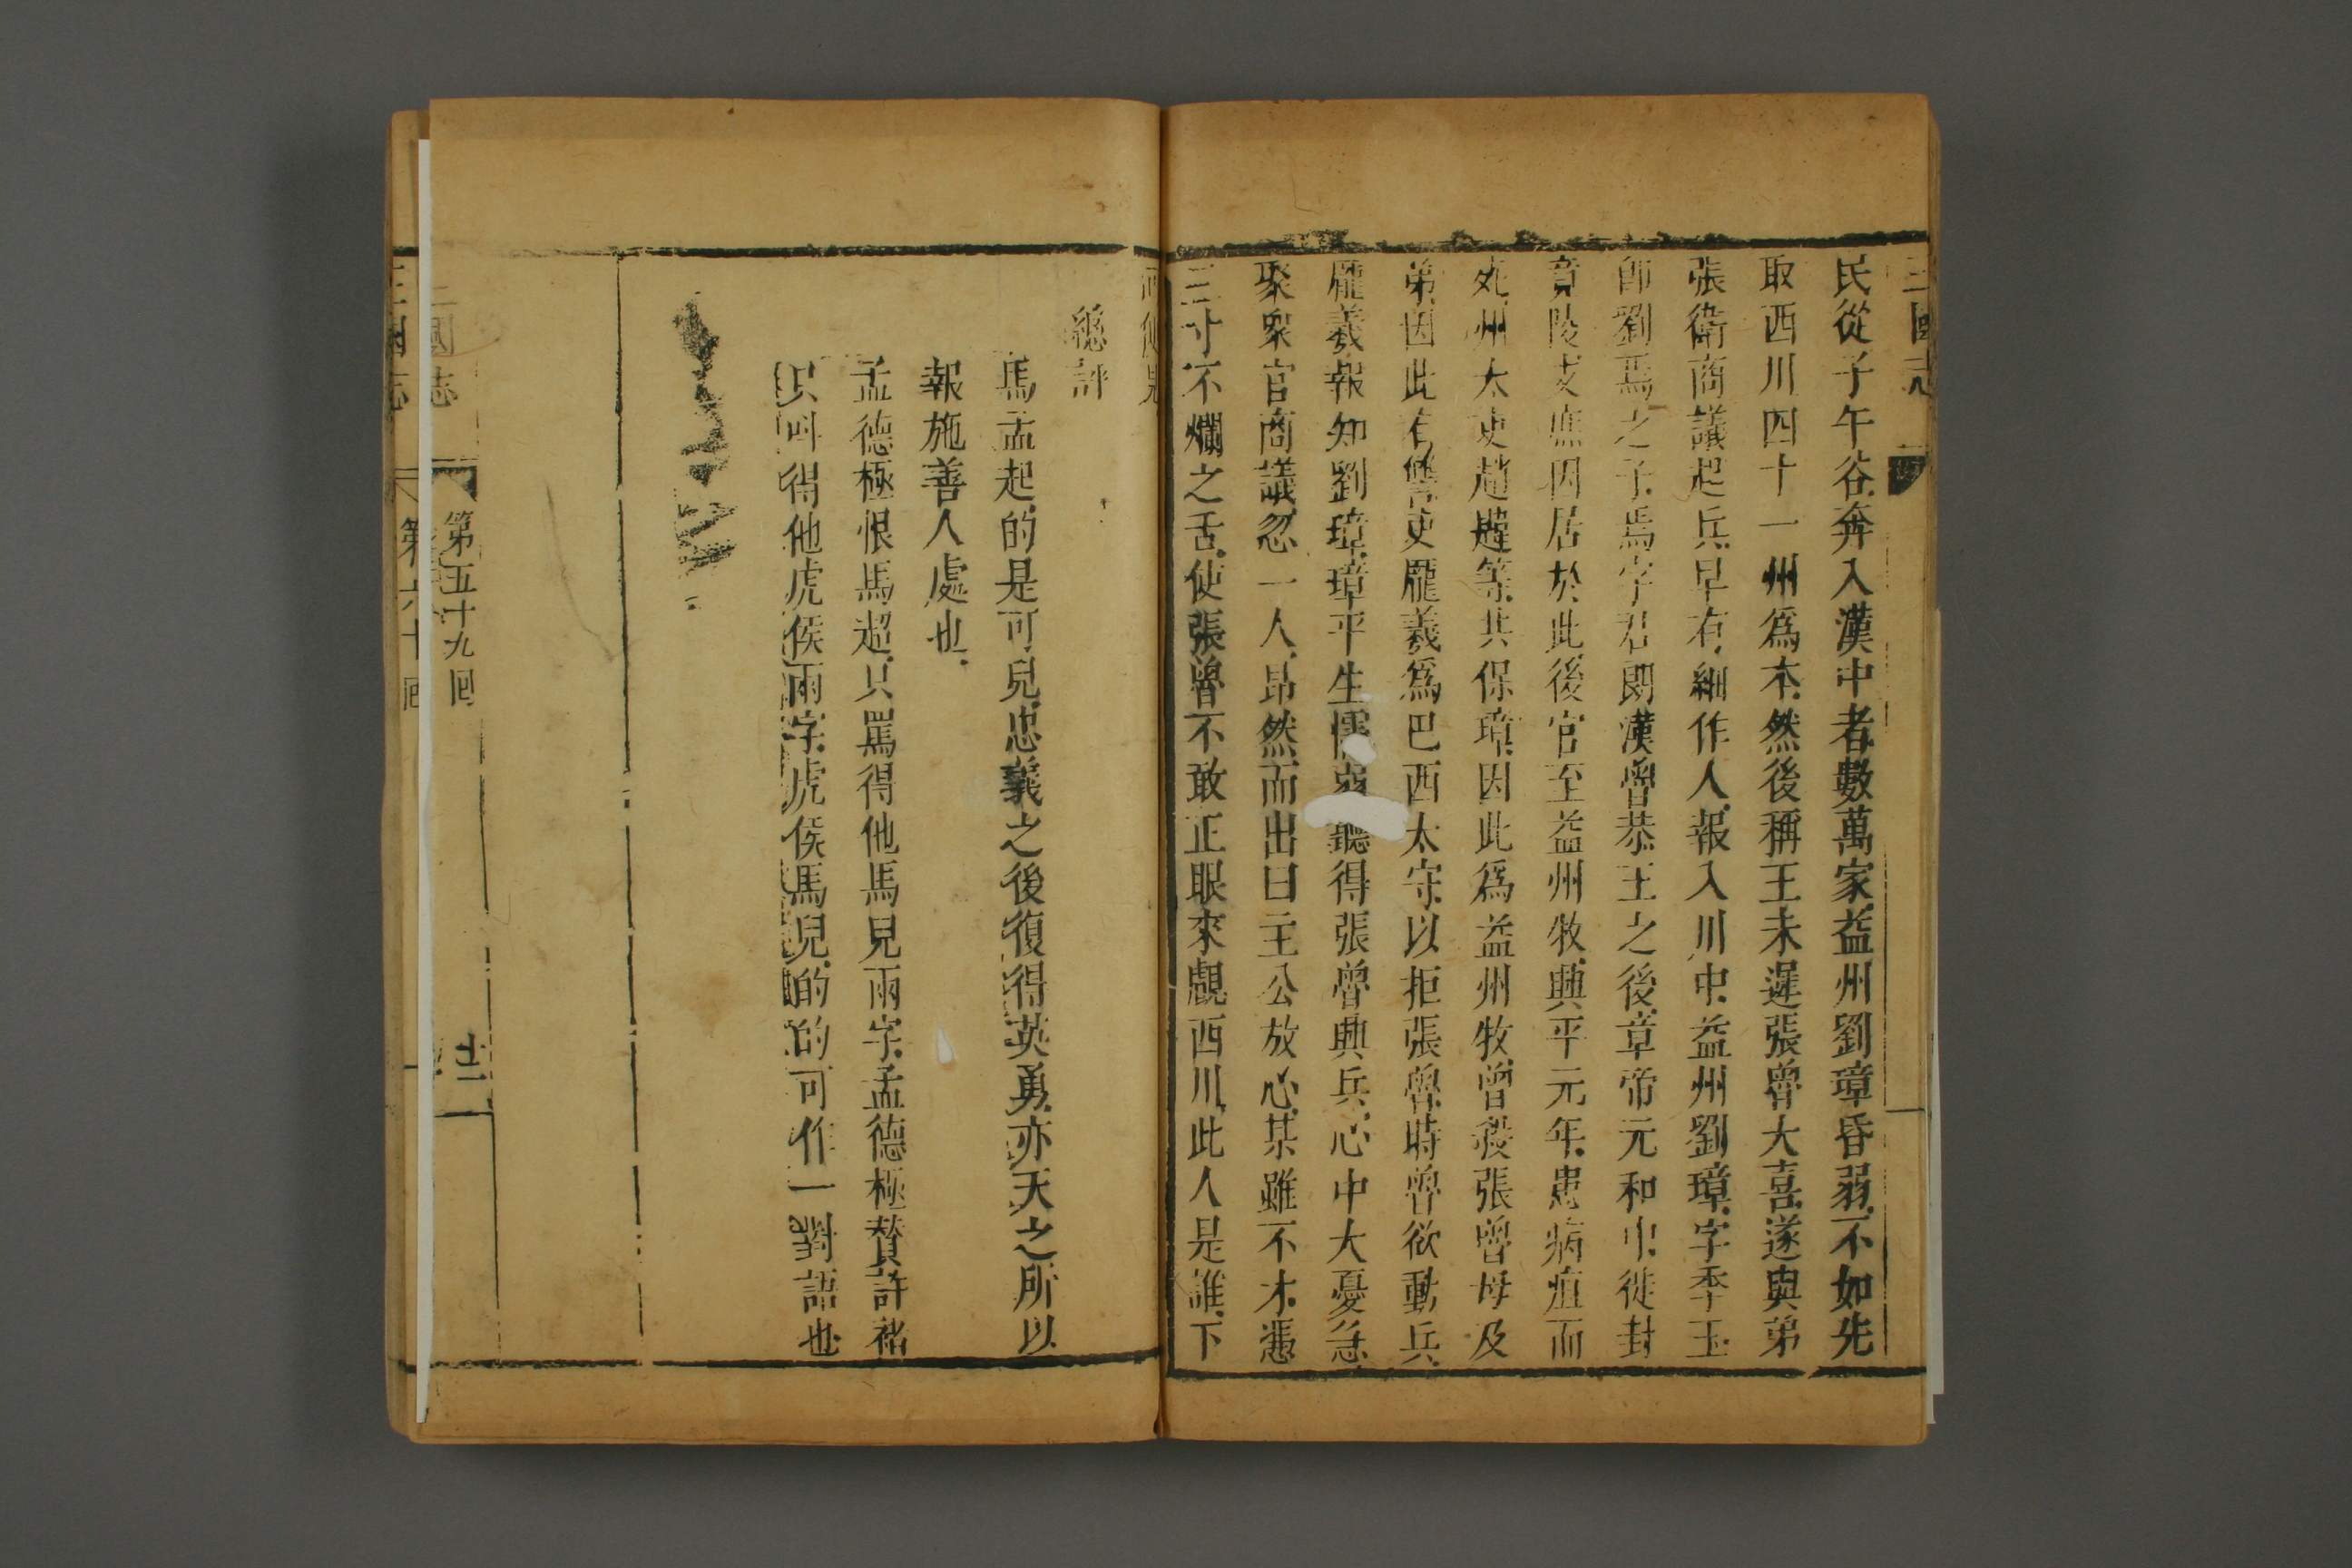 三國志
民從子午谷奔入漢中者數萬家益州劉璋昏弱不如先
取西川四十一州爲本然後稱王未遲張魯大喜遂與弟
張衛商議起兵早有細作人報入川中益州劉璋字季玉
即劉焉之子焉字君朗漢魯恭王之後章帝元和中徙封
竟陵支庶因居於此後官至益州牧興平元年患病疽而
死州太吏趙韙等共保璋因此爲益州牧曾殺張魯母及
弟因此有讐使龐羲爲巴西太守以拒張魯時魯欲動兵
龐羲報知劉璋璋平生懦弱聽得張魯興兵心中大憂急
聚衆官商議忽一人昂然而出曰主公放心某雖不才憑
三寸不爛之舌使張魯不敢正眼來覷西川此人是誰下
總評
馬孟起的是可兒忠義之後復得英勇亦天之所以
報施善人處也
孟德極恨馬超只罵得他馬兒兩字孟德極贊許褚
只呌得他虎侯兩字虎侯馬兒的的可作一對語也
三國志
第五十九回
十二
三國志
第六十回